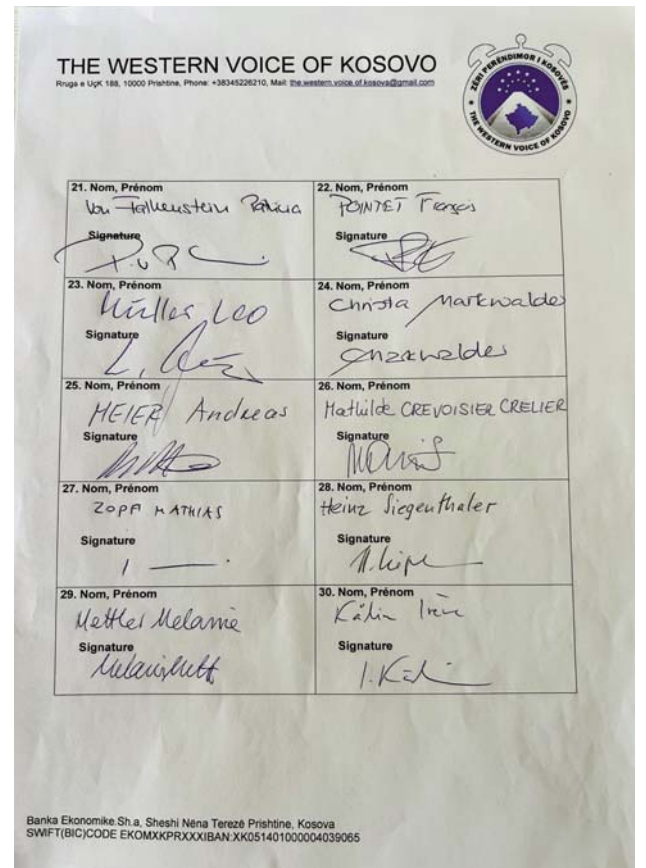 THE WESTERN VOICE OF KOSOVO
Rruga e UçK 188, 10000 Prishtine, Phone: +38345226210, Mail: the.western.voice.of.kosova@gmail.com
ZËRI PERËNDIMOR I KOSOVËS
THE WESTERN VOICE OF KOSOVO
21. Nom, Prénom
Von Falkenstein Patricia
Signature
22. Nom, Prénom
POINTET François
Signature
23. Nom, Prénom
Müller Leo
Signature
24. Nom, Prénom
Christa Markwalder
Signature
CMarkwalder
25. Nom, Prénom
MEIER Andreas
Signature
26. Nom, Prénom
Mathilde CREVOISIER CRELIER
Signature
27. Nom, Prénom
ZOPFI MATHIAS
Signature
28. Nom, Prénom
Heinz Siegenthaler
Signature
29. Nom, Prénom
Mettler Melanie
Signature
30. Nom, Prénom
Kälin Irène
Signature
I. Käl
Banka Ekonomike.Sh.a, Sheshi Nëna Terezë Prishtine, Kosova
SWIFT(BIC)CODE EKOMXKPRXXXIBAN:XK051401000004039065